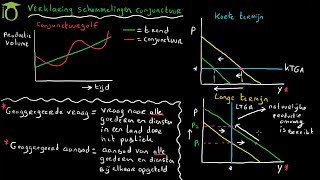 Verklaring schommelingen conjunctuur
Conjunctuurgolf
Productie
Volume
= trend
= conjunctuur
tijd
* Geaggregeerde vraag = vraag naar alle
goederen en diensten
in een land door
het publiek
* Geaggregeerd aanbod = aanbod van alle
goederen en diensten
bij elkaar opgeteld
Korte termijn
P
KTGA
Y *
Lange termijn
P
LTGA
natuurlijke
productie
omvang
is bereikt
P₂
P₁
Y *